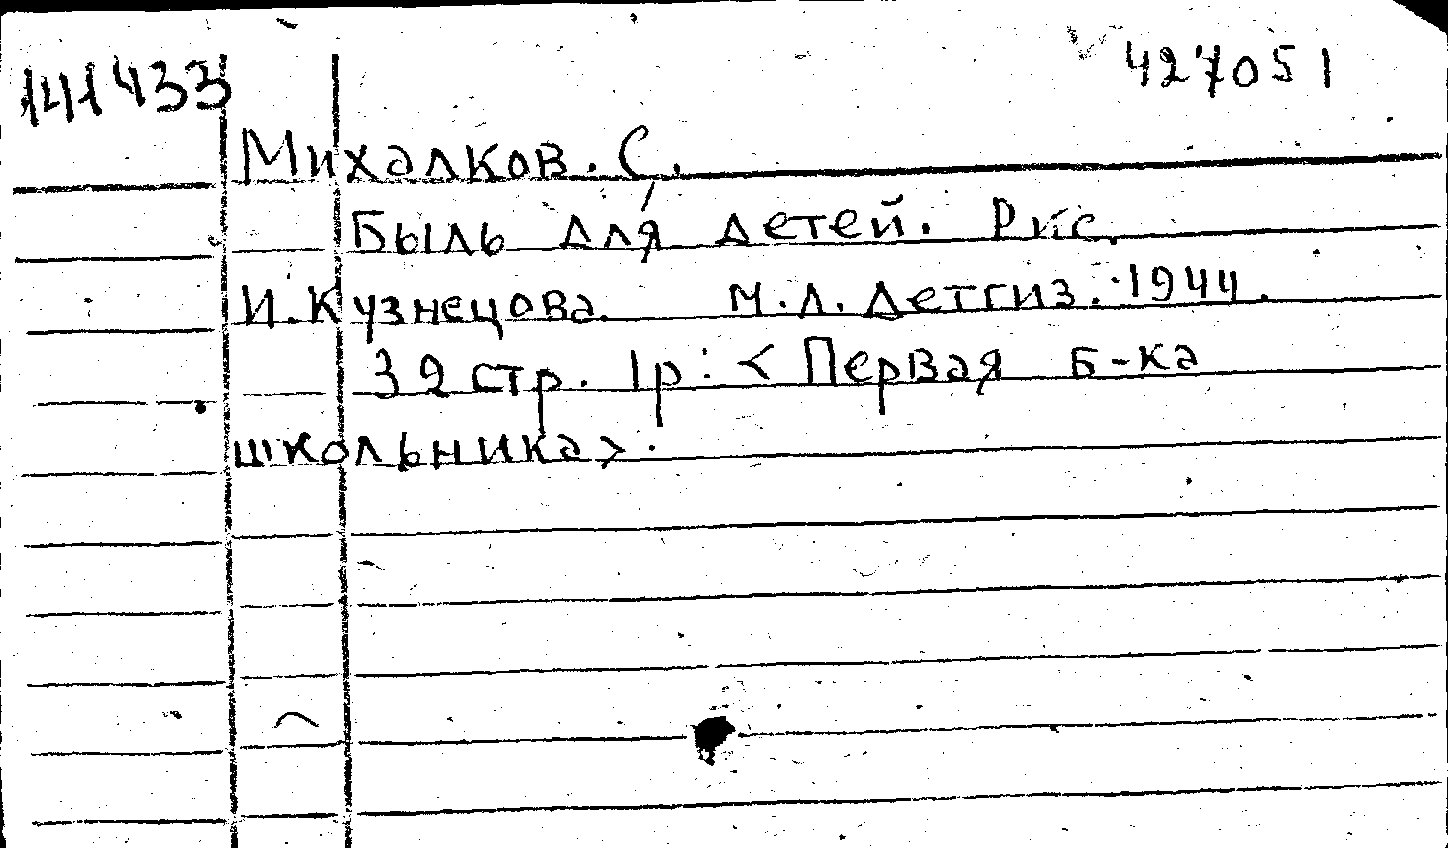 141433
427051
Михалков. С.
Быль для детей. Рис.
И. Кузнецова. М.Л. Детгиз. 1944.
32 стр. 1р: < Первая б-ка
школьника>.